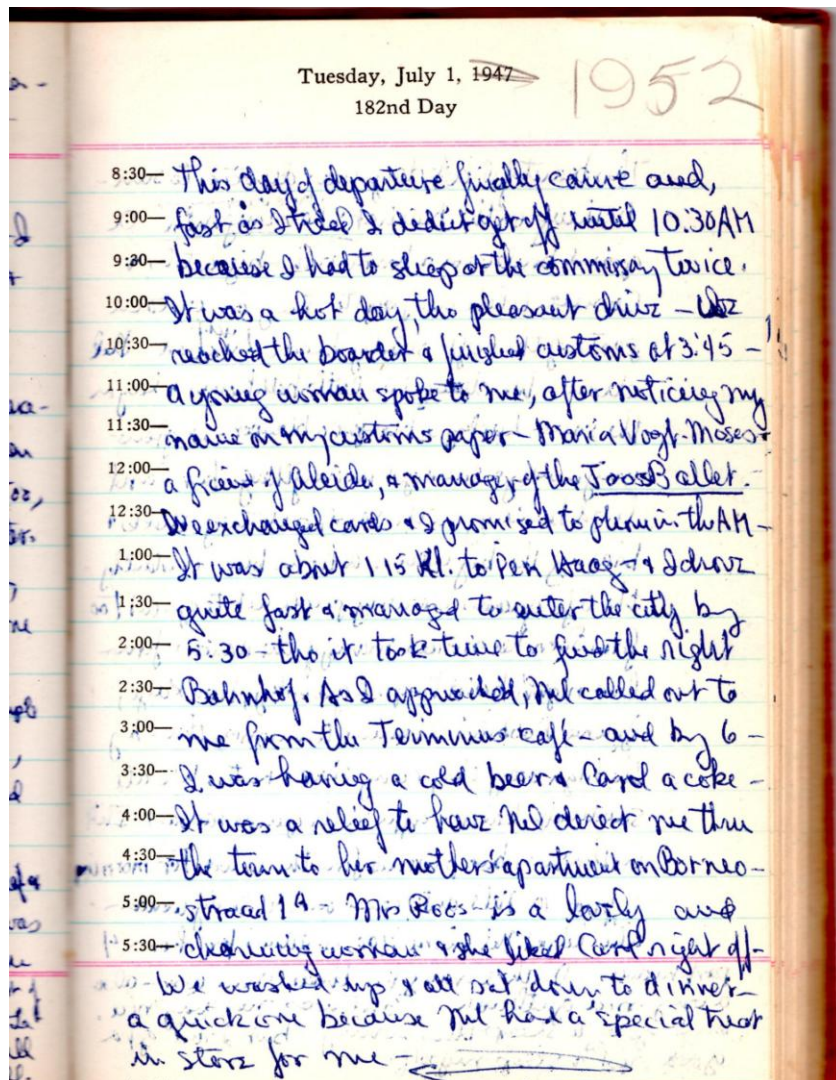 Tuesday, July 1, 1947 1952
182nd Day
8:30— This day of departure finally came and,
9:00— fast as I tried I didn't get off until 10:30 AM
9:30— because I had to shop at the commissay twice.
10:00— It was a hot day, tho pleasant drive – We
10:30— reached the boarder & finished customs at 3:45 –
11:00— a young woman spoke to me, after noticing my
11:30— name on my customs paper – Maria Vogt-Moses –
12:00— a friend of Aleida, & manager of the Jooss Ballet.
12:30— We exchanged cards & I promised to phone in the AM –
1:00— It was about 115 Kl. to Den Haag – & I drove
1:30— quite fast & managed to enter the city by
2:00— 5:30 – tho it took time to find the right
2:30— Bahnhof. As I approached, Nel called out to
3:00— me from the Terminus café – and by 6 –
3:30— I was having a cold beer & Carol a coke –
4:00— It was a relief to have Nel direct me thru
4:30— the town to her mother's apartment on Borneo-
5:00— straad 19 – Mrs Roos – is a lovely and
5:30— charming woman & she liked Carol right off –
We washed up & all sat down to dinner –
a quick one because Nel had a special treat
in store for me –